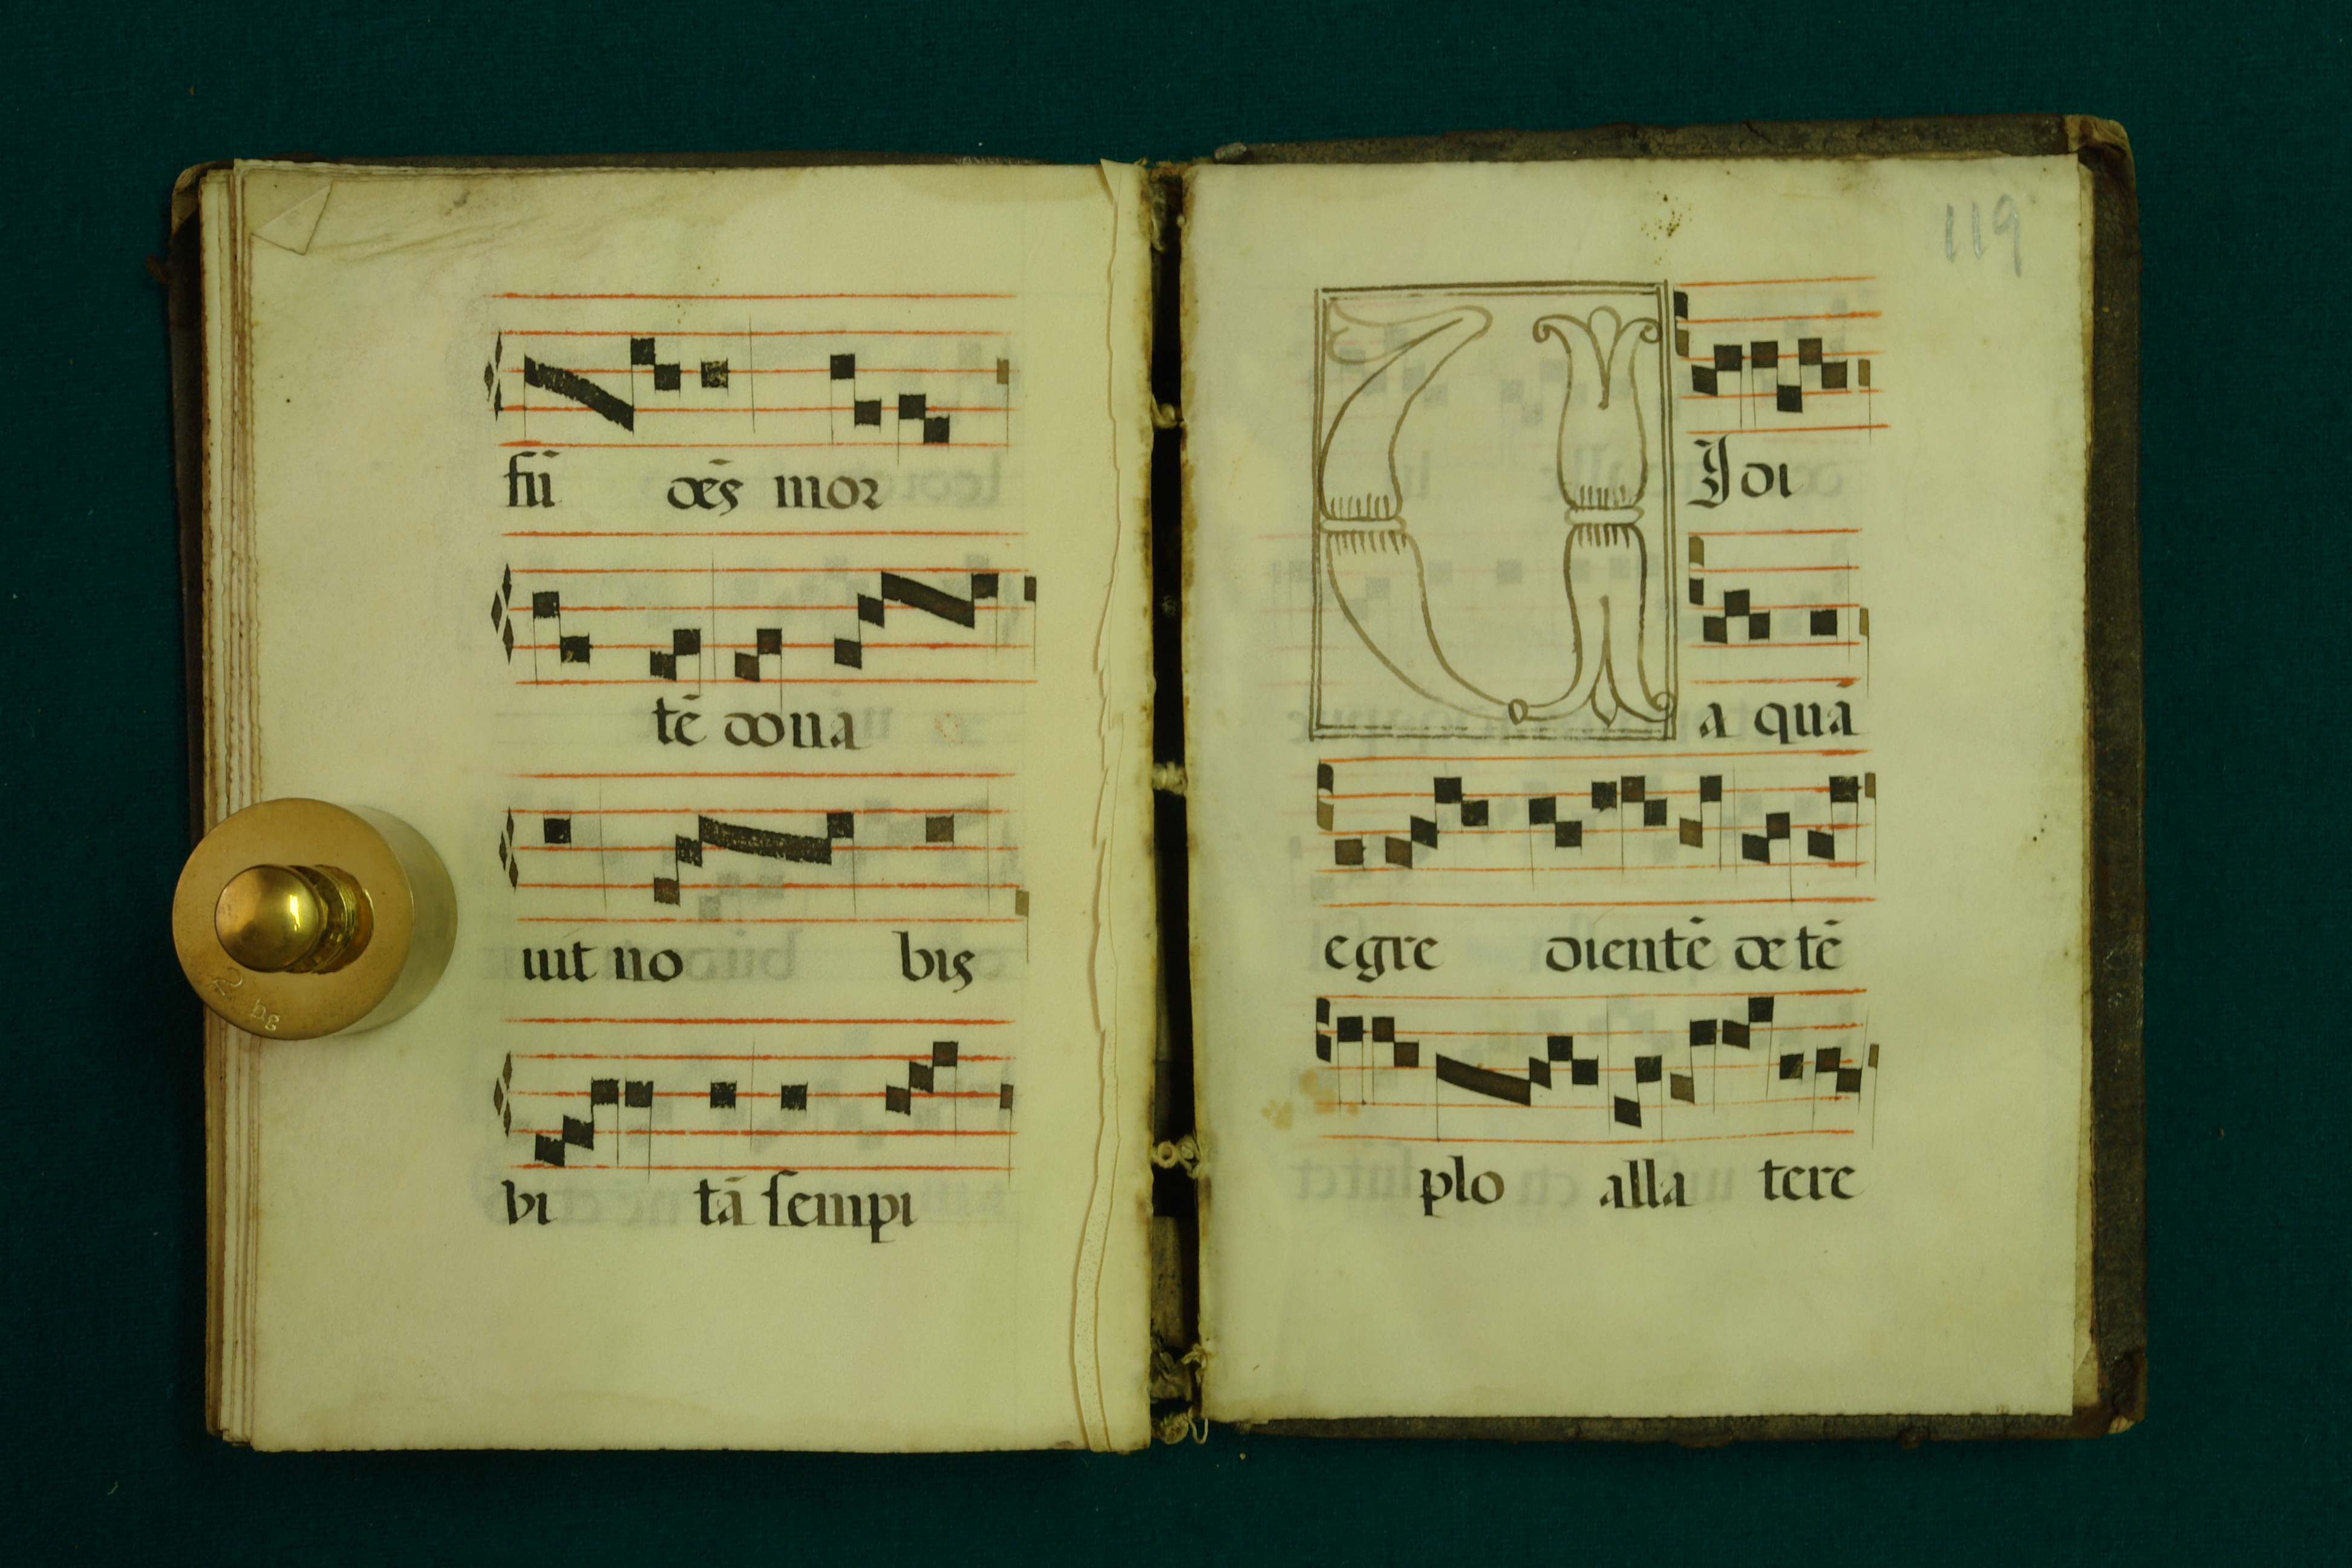 fū des mor
tē dona
uit no bis
vi tā sempi
119
V Idi
a quā
egre dientē de tē
plo alla tere
2 kg